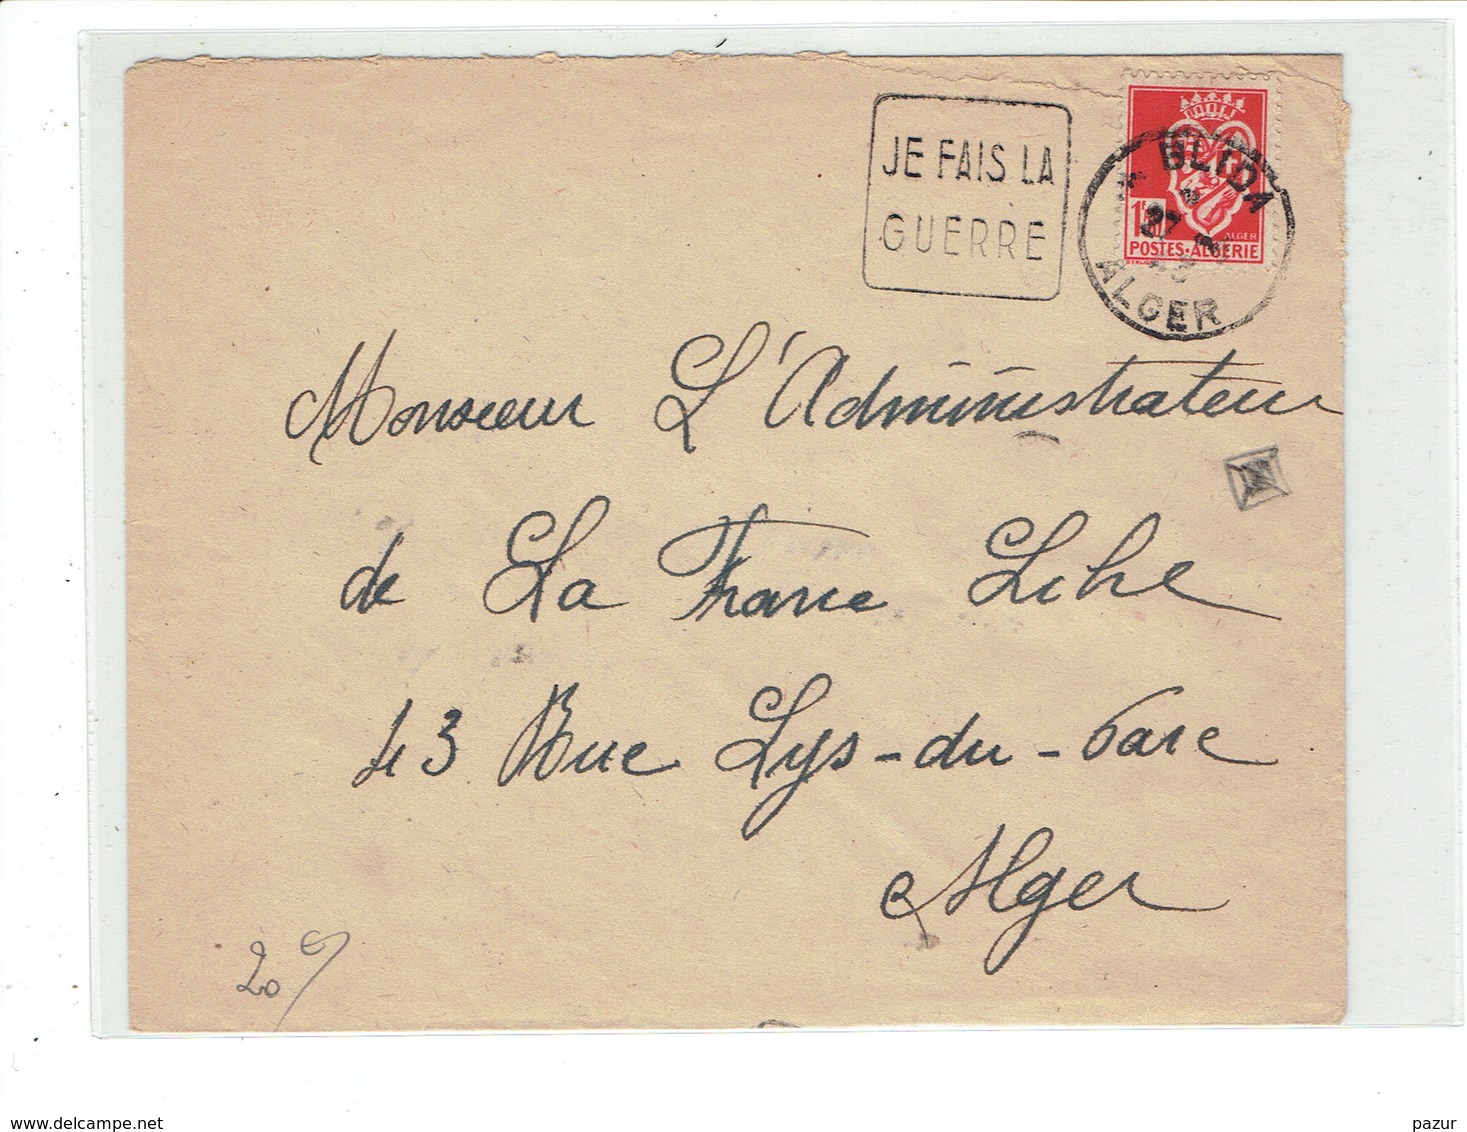 JE FAIS LA
GUERRE
BLIDA
27
ALGER
ALGER
POSTES-ALGERIE
Monsieur L'Administrateur
de La France Libre
43 Rue Lys-du-Parc
Alger
20
www.delcampe.net
pazur